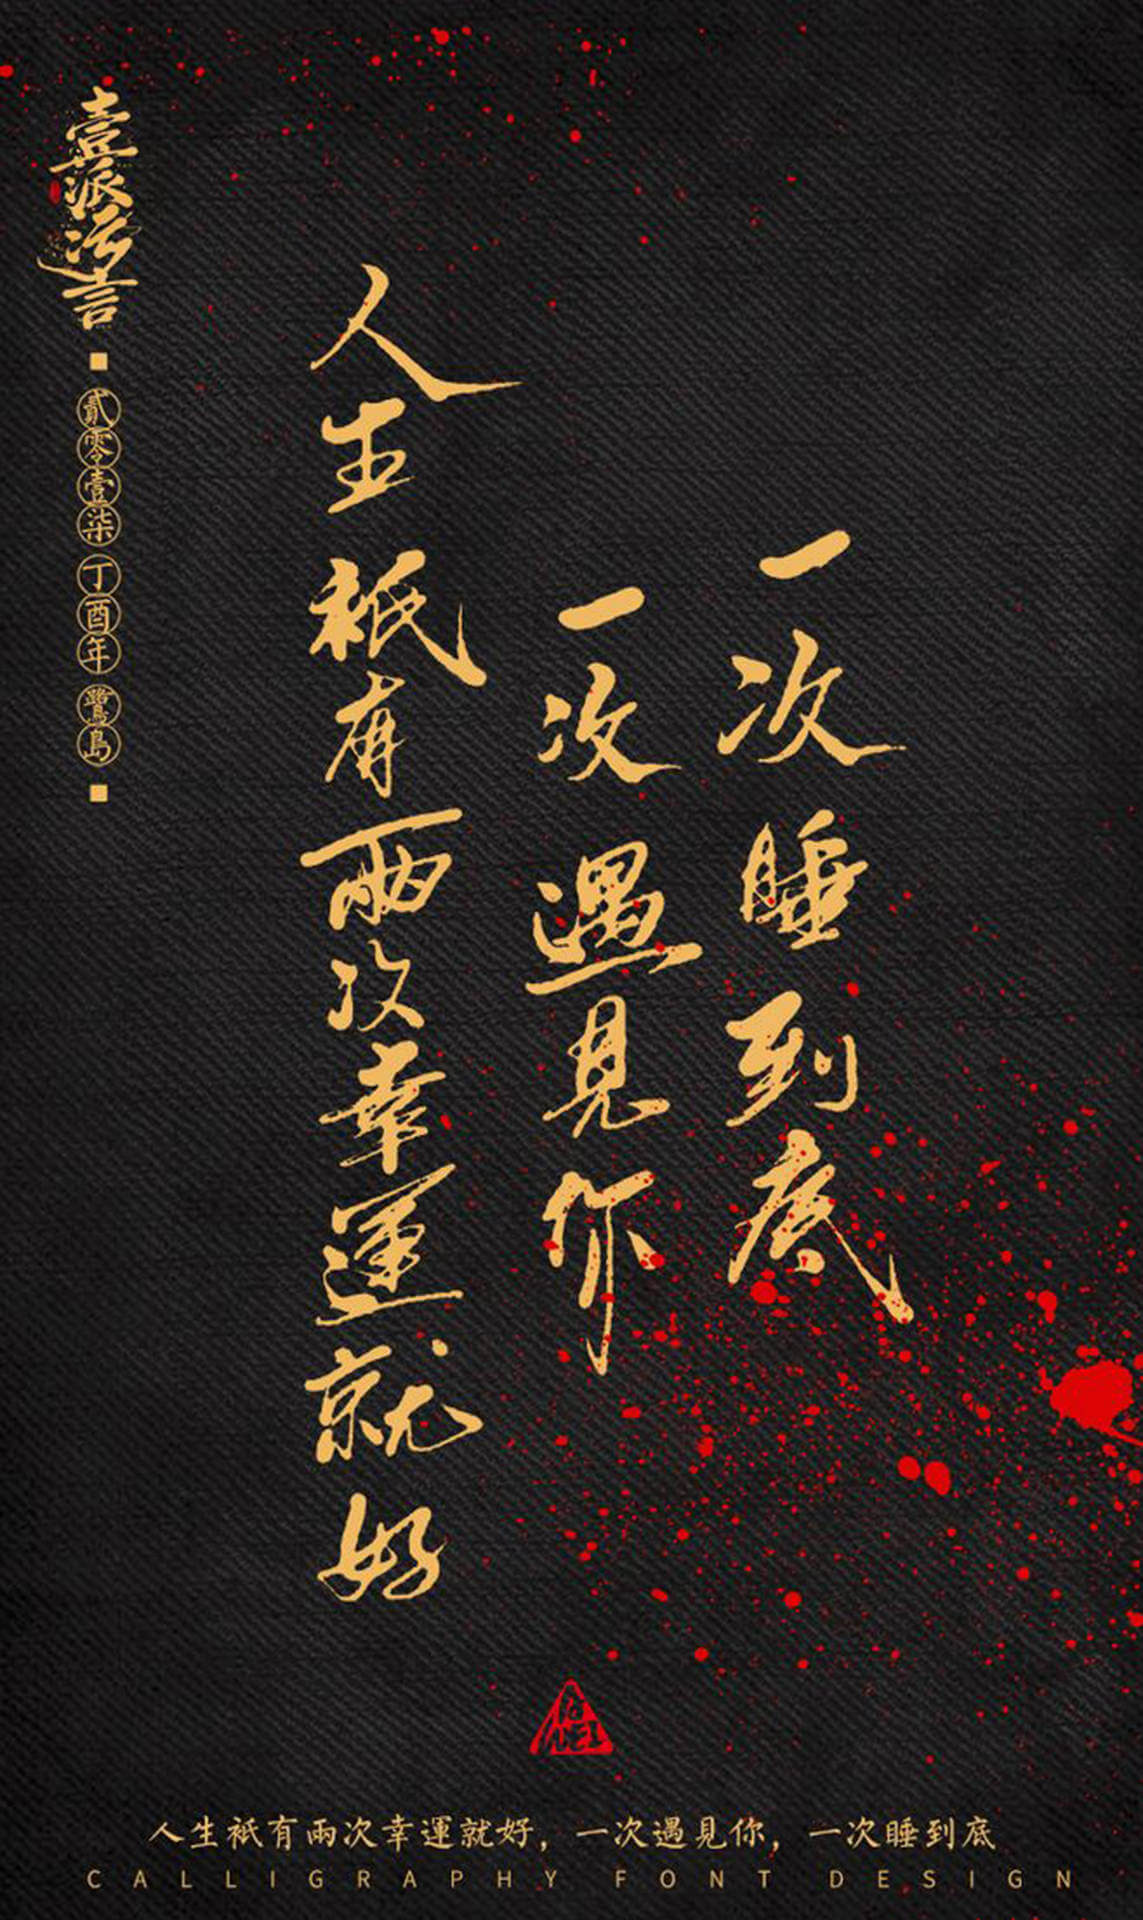 壹派污言
貳零壹柒 丁酉年 鷺島
人生衹有兩次幸運就好
一次遇見你
一次睡到底
人生衹有兩次幸運就好，一次遇見你，一次睡到底
CALLIGRAPHY FONT DESIGN